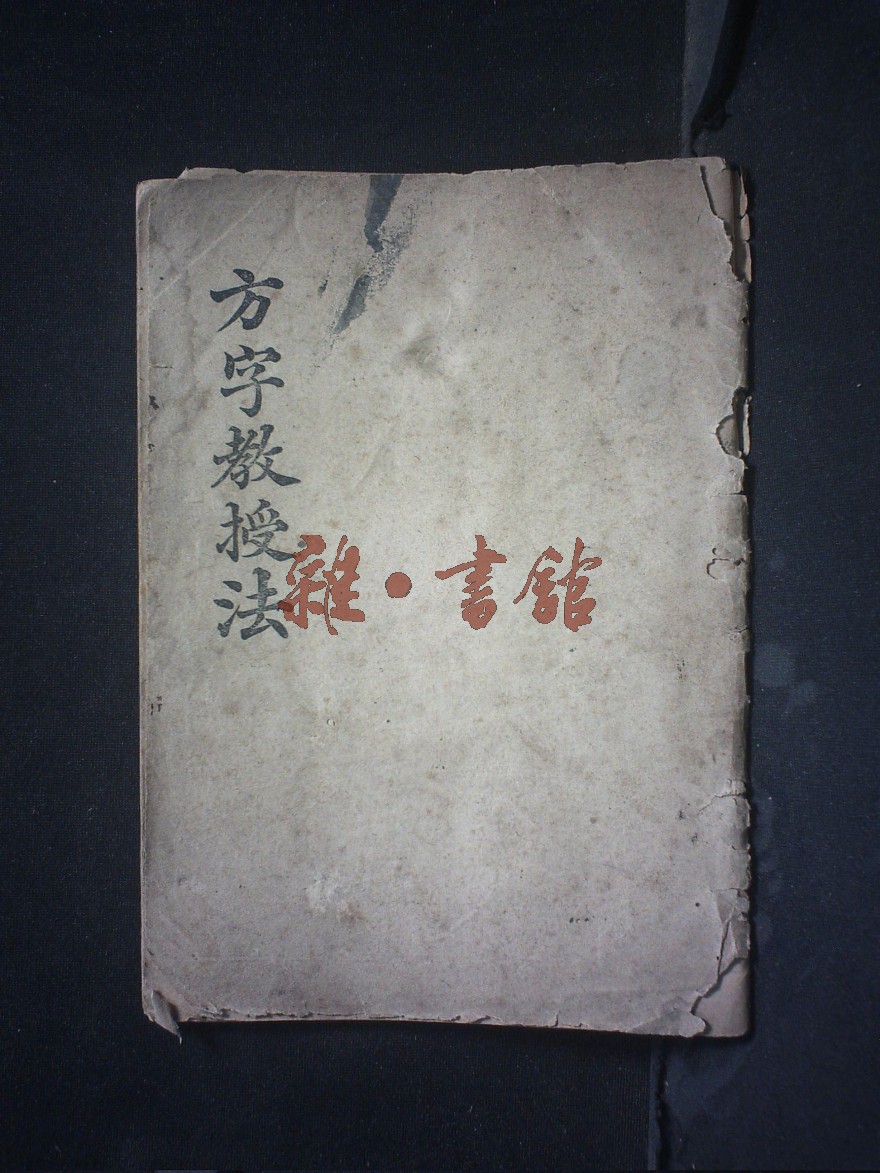 方字教授法
雜·書館